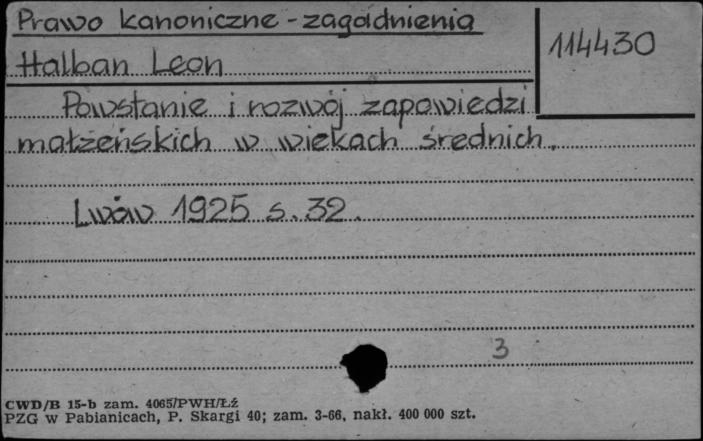 Prawo kanoniczne - zagadnienia
114430
Halban Leon
Powstanie i rozwój zapowiedzi
małżeńskich w wiekach średnich.
Lwów 1925 s. 32.
3
CWD/B 15-b zam. 4065/PWH/Łź
PZG w Pabianicach, P. Skargi 40; zam. 3-66, nakł. 400 000 szt.